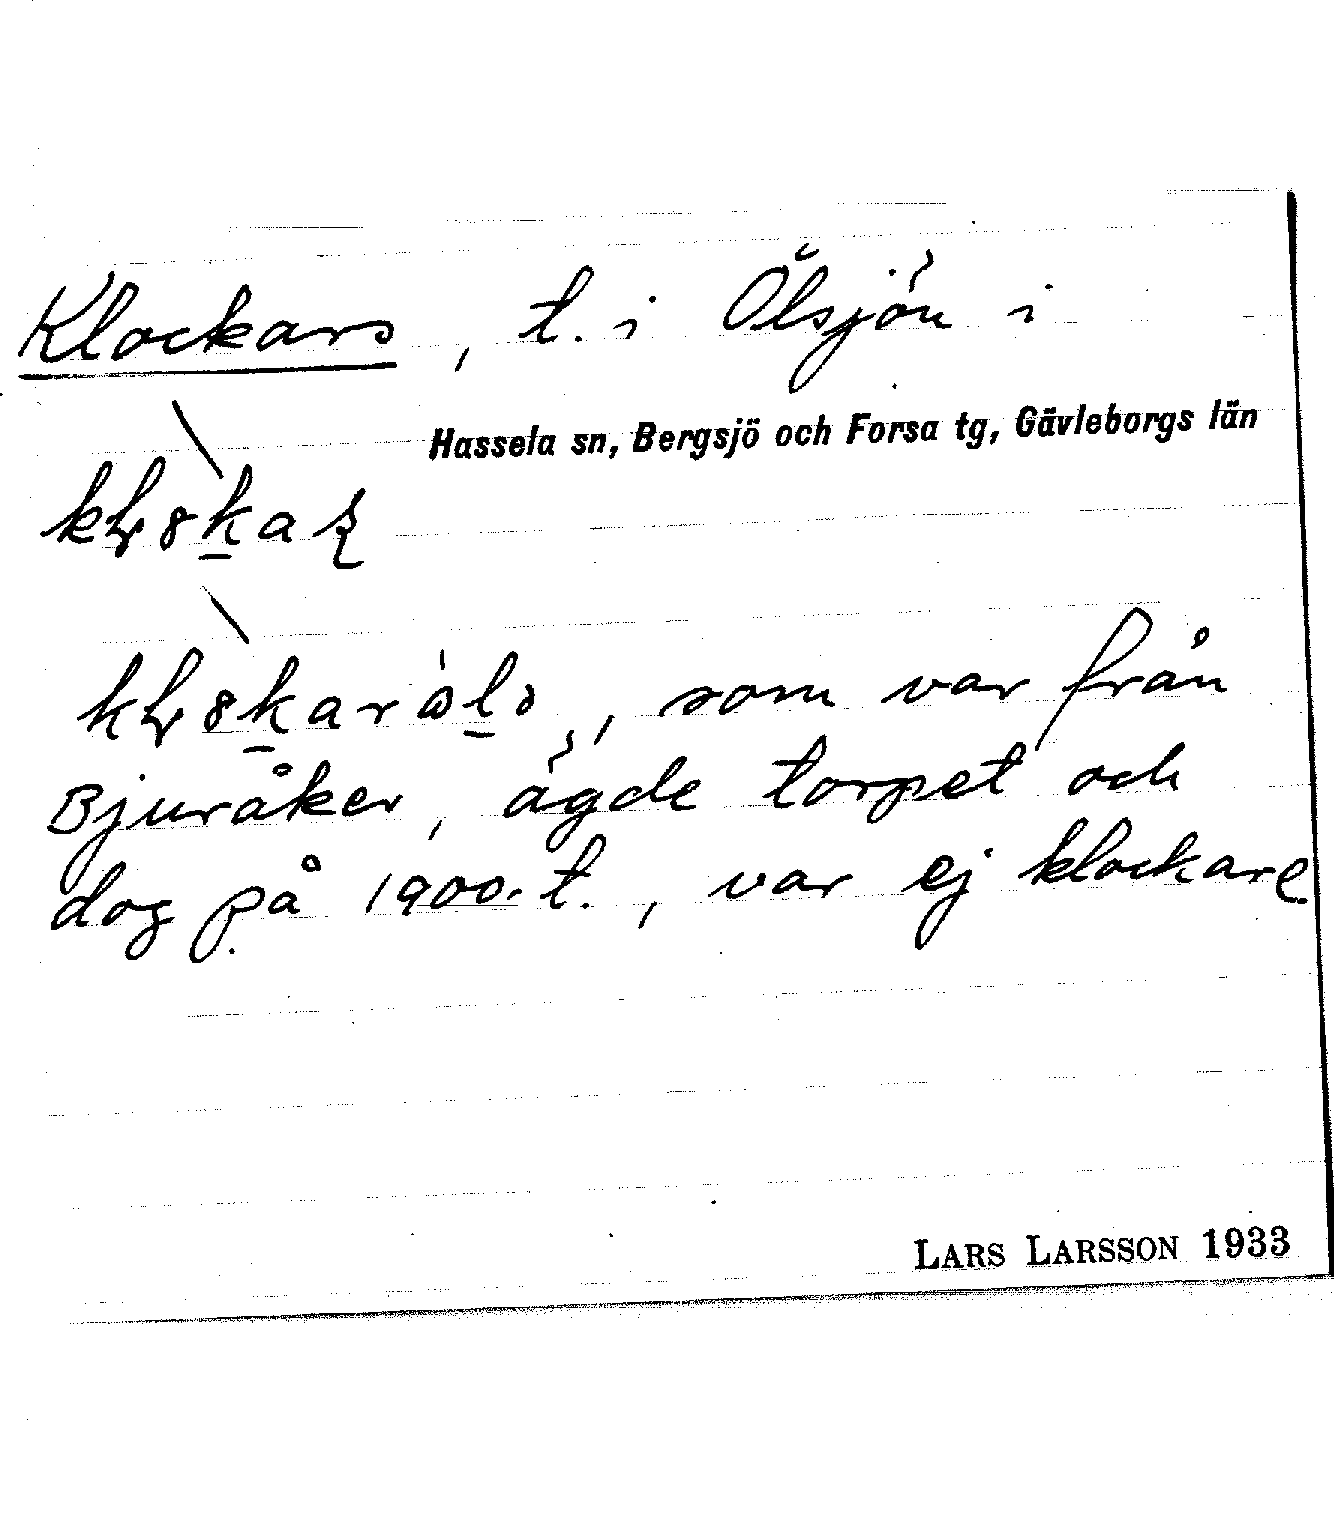 Klockars, t. i Ölsjön i
Hassela sn, Bergsjö och Forsa tg, Gävleborgs län
som var från
Bjuråker, ägde torpet och
dog på 1900-t., var ej klockare.
LARS LARSSON 1933